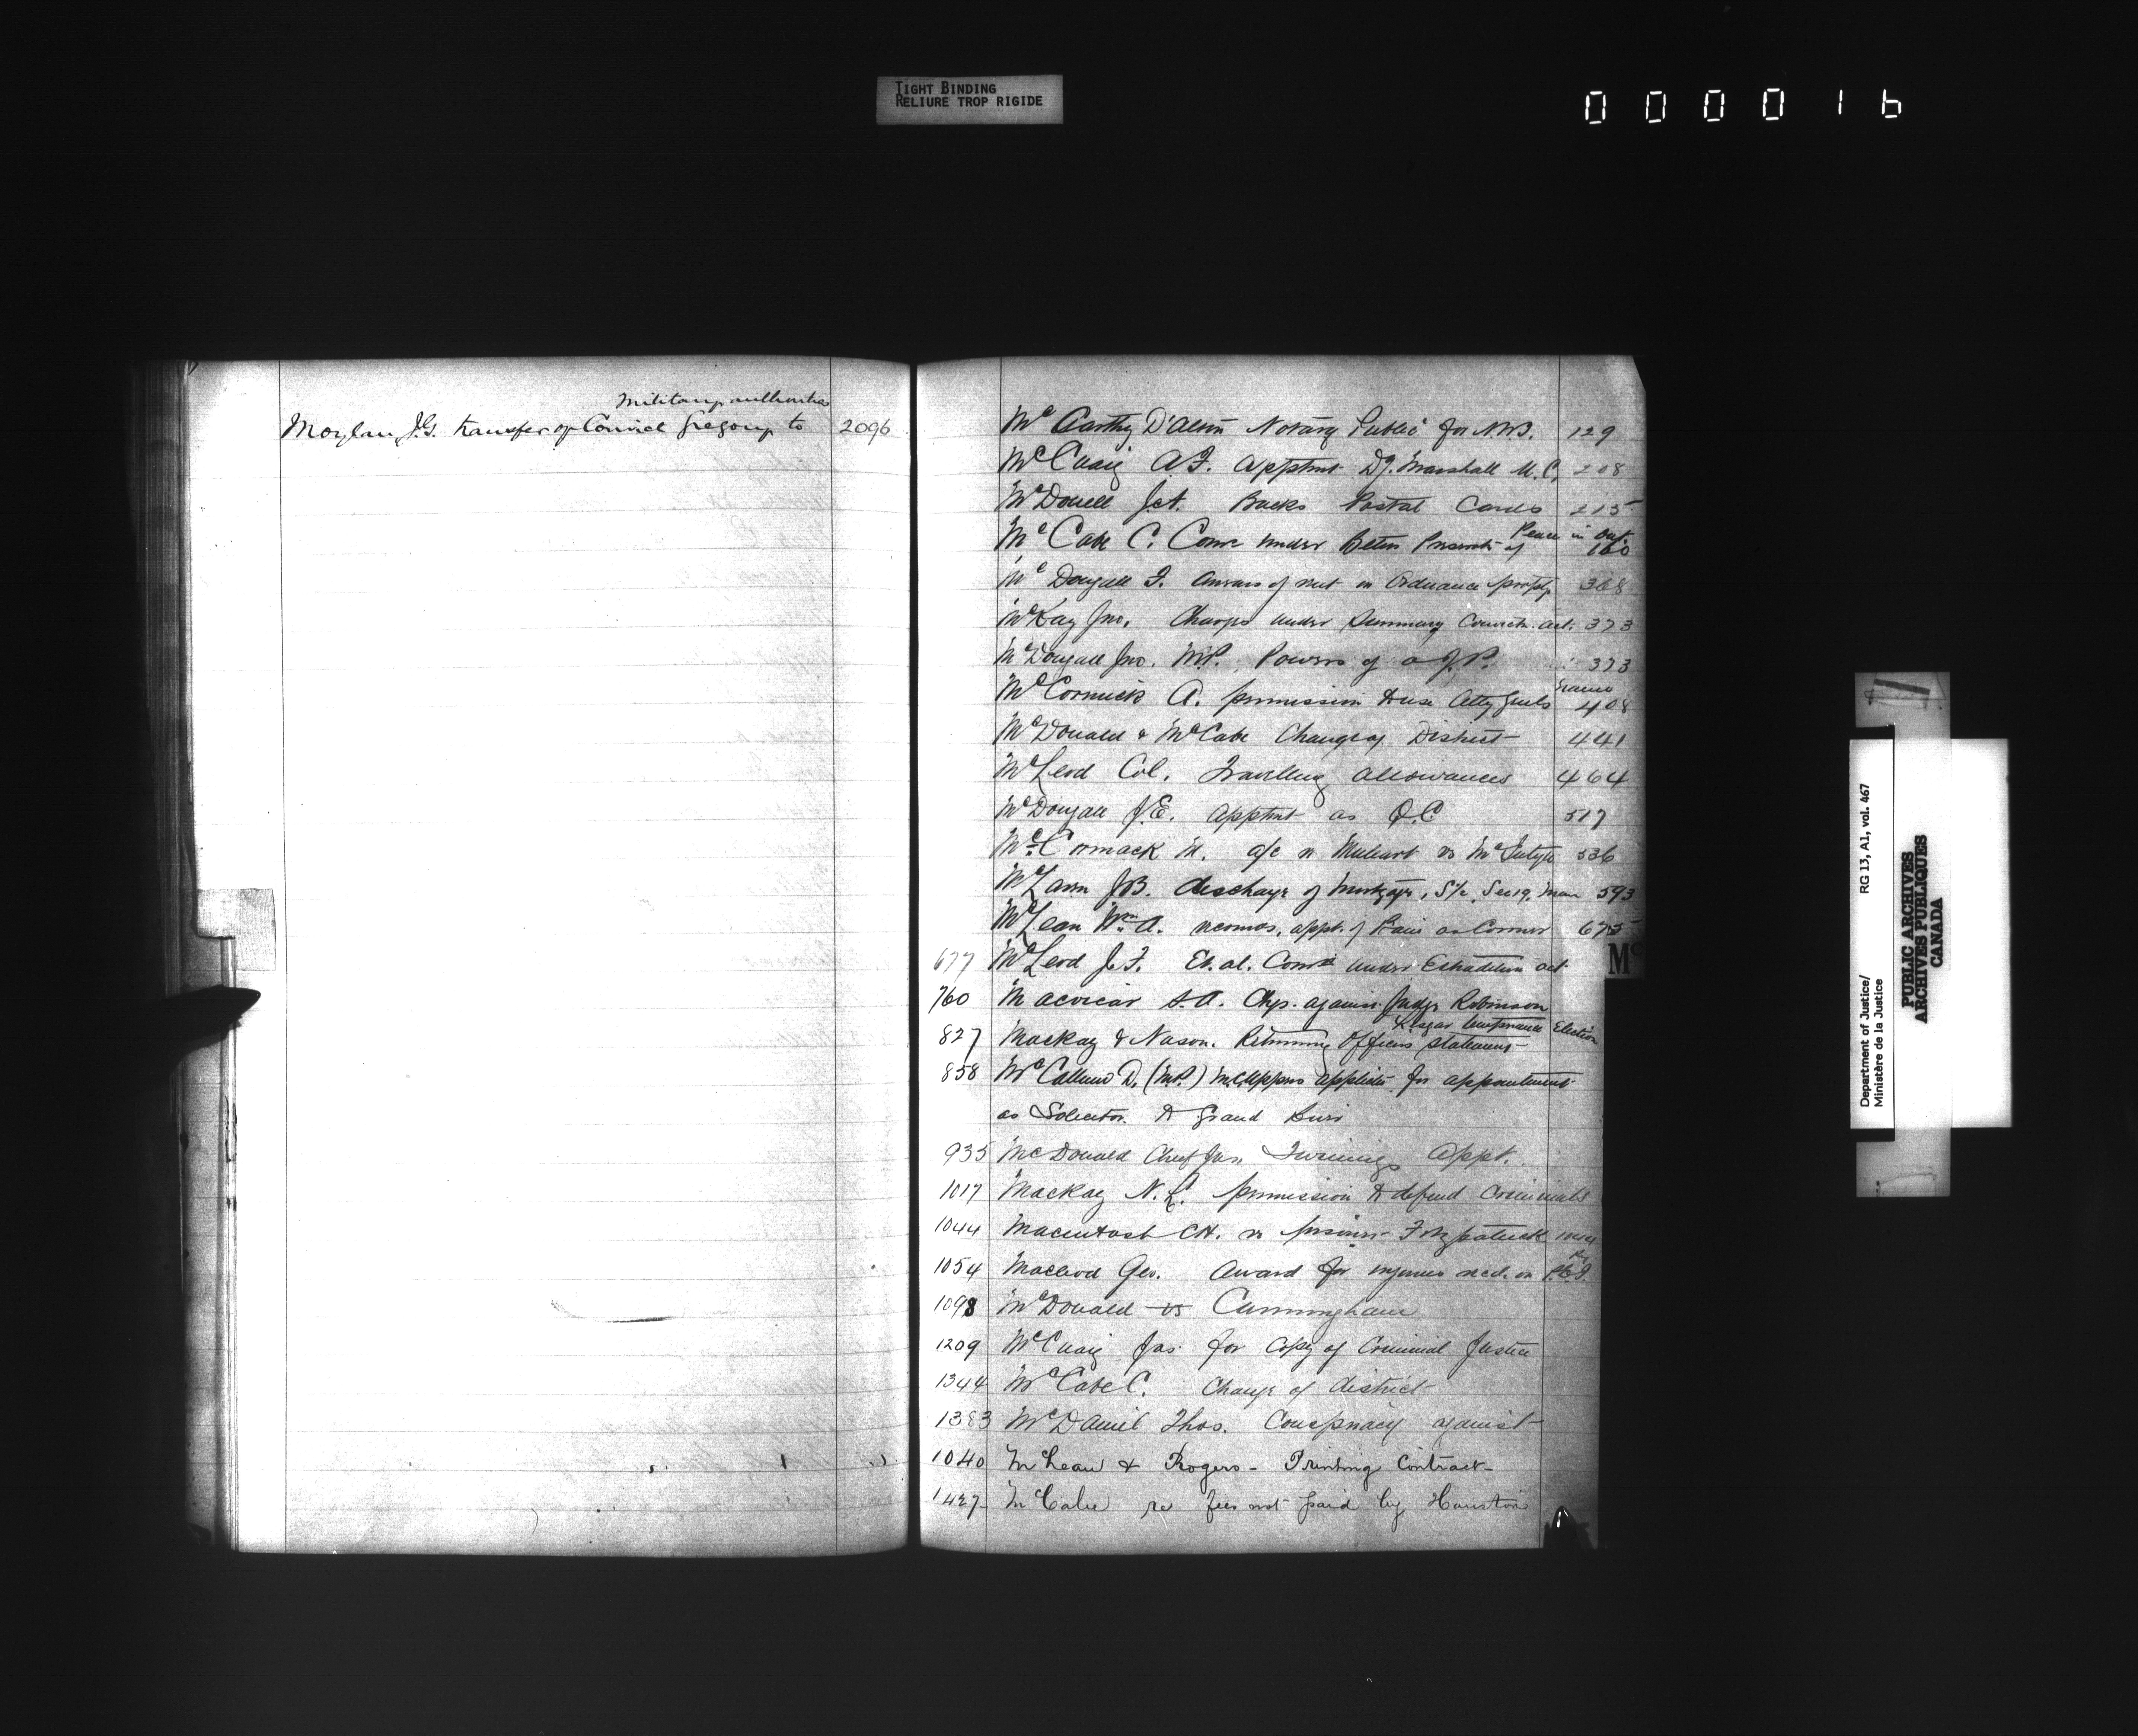 TIGHT BINDING
RELIURE TROP RIGIDE
000016
Military authorities
Moylan J.G. transfer of Convict Gregory to 2096
McCarthy D'Alton Notary Public for N.B. 129
McCuaig A.F. apptmt Dy. Marshall M.C. 208
McDonell J.A. Backs Postal Cards 215
Peace in
McCabe C. Comr under Better Preservtn of 160
McDougall F. Arrears of rent on Ordnance propty. 368
McKay Jno. Charges under Summary Convictn. act. 373
McDougall Jno. M.P. Powers of a J.P. 373
McCormick A. permission to use Atty Genls 408
McDonald & McCabe Change of District 441
McLeod Col. Travelling allowances 464
McDougall J.E. apptmt as Q.C 517
McCormack M. a/c re vs McIntyre 536
McLaren J.B. discharge of mortgage, Sec 19, Man 593
McLean Wm. A. appt. of as Coroner 675
Mc
677 McLeod J.F. Et. al. Comrs under Extradition act
760 Macvicar S.A. Chgs. against Judge Robinson
Lisgar temperance Election
827 Mackay & Nason. Returning Officers statement
858 McCallum D. (M.P.) applictn for appointment
as Solicitor to Grand
935 McDonald Chief Jus Twinings appt.
1017 Mackay N.E. permission to defend Criminals
1044 Macintosh C.H. re prisoner Fitzpatrick 1044
1054 Macleod Geo. Award for injuries recd. on P.E.I. Ry
1098 McDonald vs Cunningham
1209 McCuaig Jas. for Copy of Criminal Justice
1344 McCabe C. Change of district
1383 McDaniel Thos. Conspiracy against
1040 McLean & Rogers - Printing Contract
1427 McCabe re fees not paid by Houston
Department of Justice/ RG 13, A1, vol. 467
Ministère de la Justice
PUBLIC ARCHIVES
ARCHIVES PUBLIQUES
CANADA